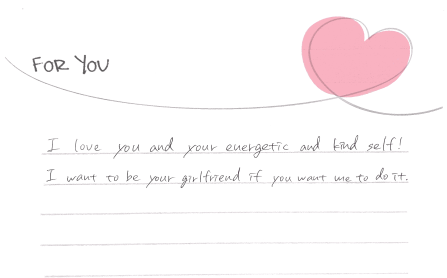 FOR YOU
I love you and your energetic and kind self!
I want to be your girlfriend if you want me to do it.